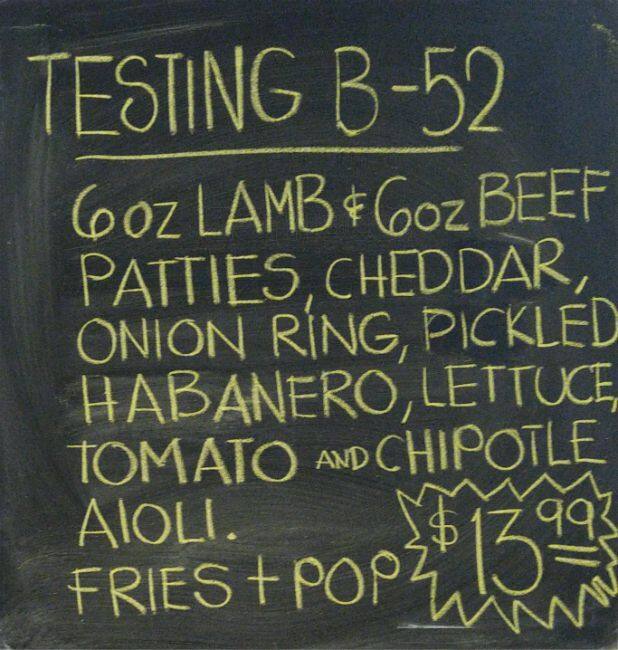 TESTING B-52
6oz LAMB & 6oz BEEF
PATTIES, CHEDDAR,
ONION RING, PICKLED
HABANERO, LETTUCE,
TOMATO AND CHIPOTLE
AIOLI.
FRIES + POP
$13.99